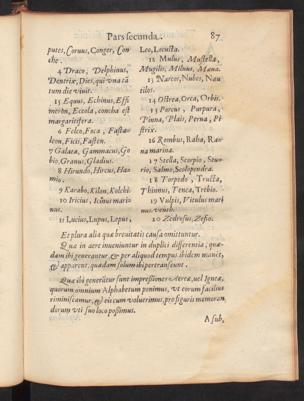 Pars secunda. 87
putes, Coruus, Conger, Con
che.
4 Draco, Delphinus,
Dentrix, Dies, qui vna tã
tum die viuit.
15 Equus, Echinus, Effi
merõn, Eccola, concha est
margaritifera.
6 Felco, Foca, Fusta-
lem, Ficis, Fasten.
7 Galata, Gammacus, Go
bio, Granus, Gladius.
8 Hirundo, Hircus, Ha
mio.
9 Karabo, Kilon, Kolchi.
10 Iricius, Icinus mari
nus.
11 Lucius, Lupus, Lepus,
Leo, Locusta.
12 Mulus, Mustella,
Mugilis, Miluus, Mana.
13 Narcos, Nubes, Nau
tilos.
14 Ostrea, Orca, Orbis.
15 Porcus, Purpura,
Pinna, Plais, Perna, Pi
strix.
16 Rombus, Raha, Ra-
na marina.
17 Stella, Scorpio, Stu-
rio, Salmo, Scolopendra.
18 Torpedo, Tructa,
Thinnus, Tenca, Trebio.
19 Vulpis, Vitulus mari
nus
20 Zedrosus, Zefio.
Et plura alia quæ breuitatis causa omittuntur.
Quæ in aere inueniuntur in duplici differentia, quæ-
dam ibi generantur, & per aliquod tempus ibidem manet,
& apparent, quædam solum ibi pertranseunt.
Quæ ibi generãtur sunt impressiones Aereæ, vel Igneæ,
quorum omnium Alphabetum ponimus, vt eorum facilius
reminiscamur, & eis cum voluerimus, pro figuris memoran
dorum vti suo loco possimus.
A sub,